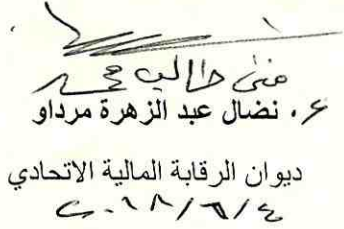 منى طالب محمد
ع. نضال عبد الزهرة مرداو
ديوان الرقابة المالية الاتحادي
٢٠١٨/٦/٤